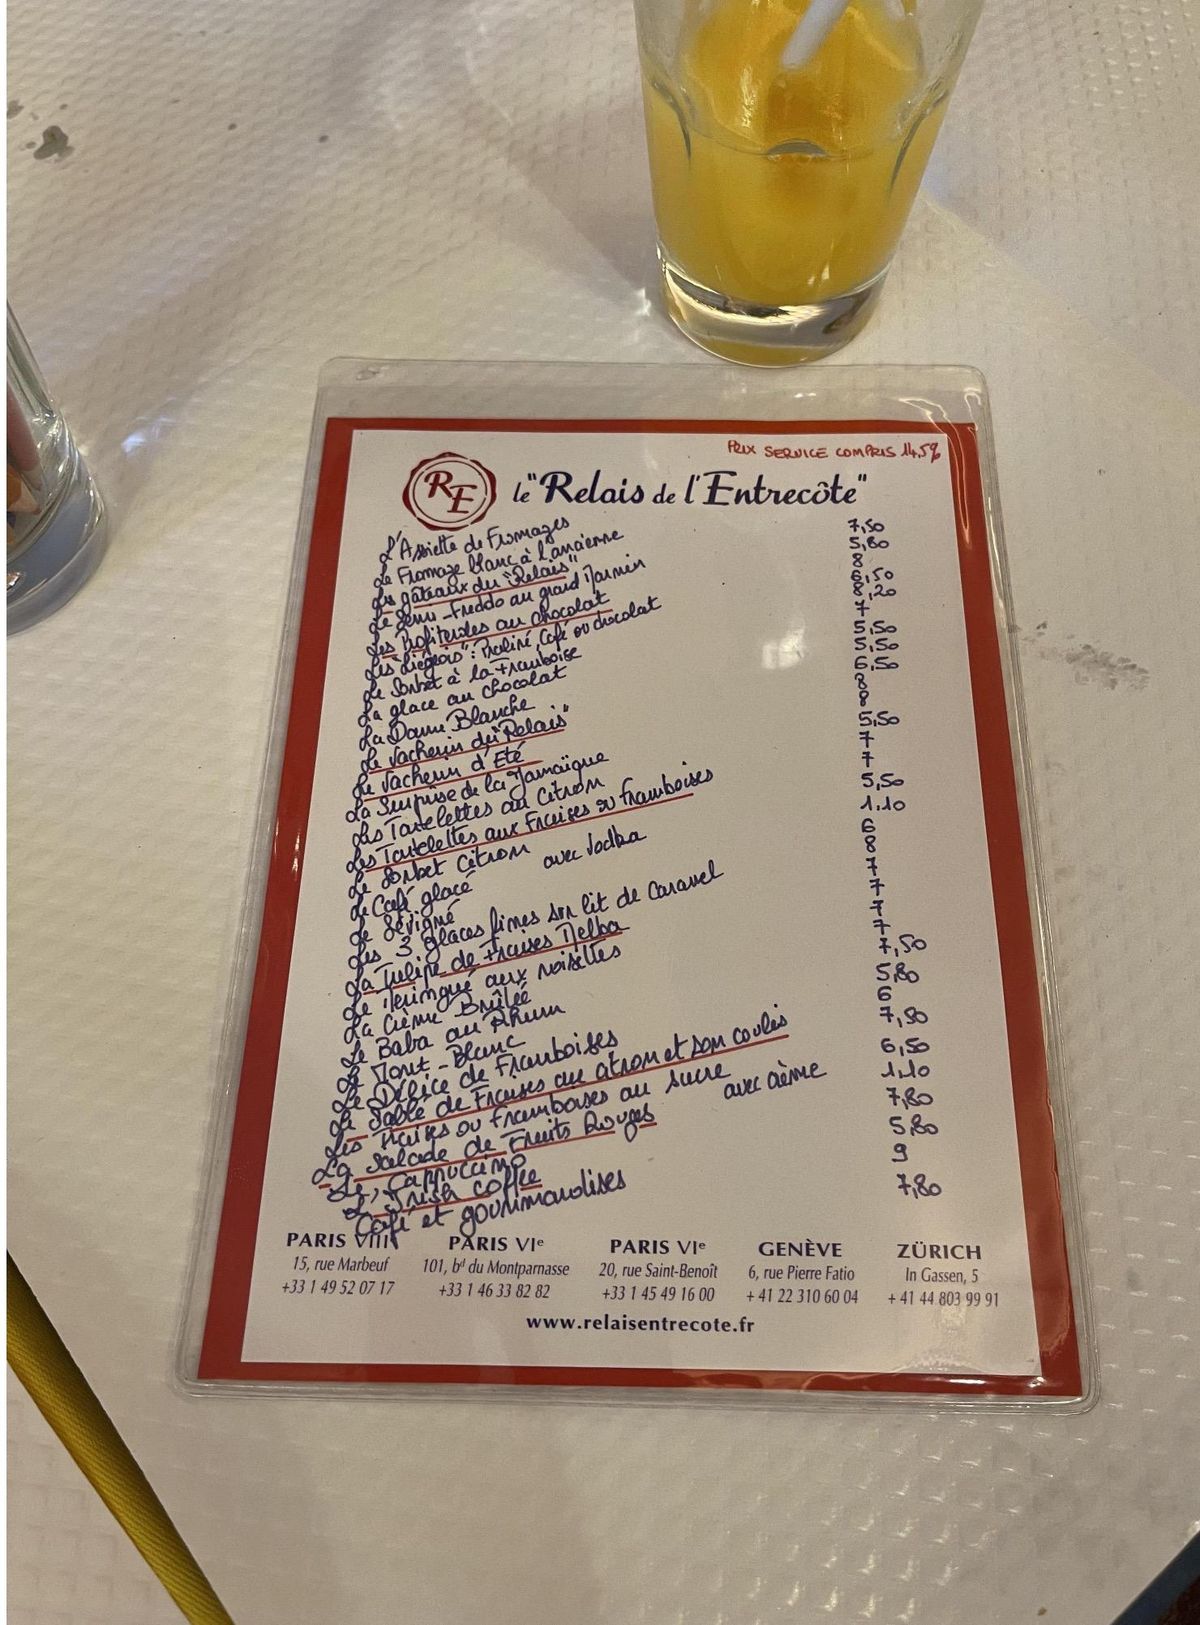 PRIX SERVICE COMPRIS 14,5%
RE
le "Relais de l'Entrecôte"
L'Assiette de Fromages 7,50
Le Fromage blanc à l'ancienne 5,80
Les gâteaux du "Relais" 8
Le Semi-Freddo au grand Marnier 6,50
Les Profiteroles au chocolat 8,20
Les "Liégeois": Praliné, Café ou chocolat 7
Le Sorbet à la Framboise 5,50
La glace au chocolat 5,50
La Dame Blanche 6,50
Le Vacherin du "Relais" 8
Le Vacherin d'Eté 8
La Surprise de la Jamaïque 5,50
Les Tartelettes au Citron 7
Les Tartelettes aux Fraises ou Framboises 7
Le Sorbet Citron 5,50
avec Vodka 1,10
Le Café glacé 6
Le Sévigné 8
Les 3 glaces fines sur lit de Caramel 7
La Tulipe de Fraises Melba 7
Le Meringué aux noisettes 7
La Crème Brûlée 7
Le Baba au Rhum 7,50
Le Mont-Blanc 5,80
Le Délice de Framboises 6
Le Sablé de Fraises au citron et son coulis 7,50
Les Fraises ou Framboises au sucre 6,50
avec crème 1,10
La Salade de Fruits Rouges 7,80
Le Cappuccino 5,80
L'Irish Coffee 9
Café et gourmandises 7,80
PARIS VIIIe PARIS VIe PARIS VIe GENÈVE ZÜRICH
15, rue Marbeuf 101, bd du Montparnasse 20, rue Saint-Benoît 6, rue Pierre Fatio In Gassen, 5
+33 1 49 52 07 17 +33 1 46 33 82 82 +33 1 45 49 16 00 + 41 22 310 60 04 + 41 44 803 99 91
www.relaisentrecote.fr